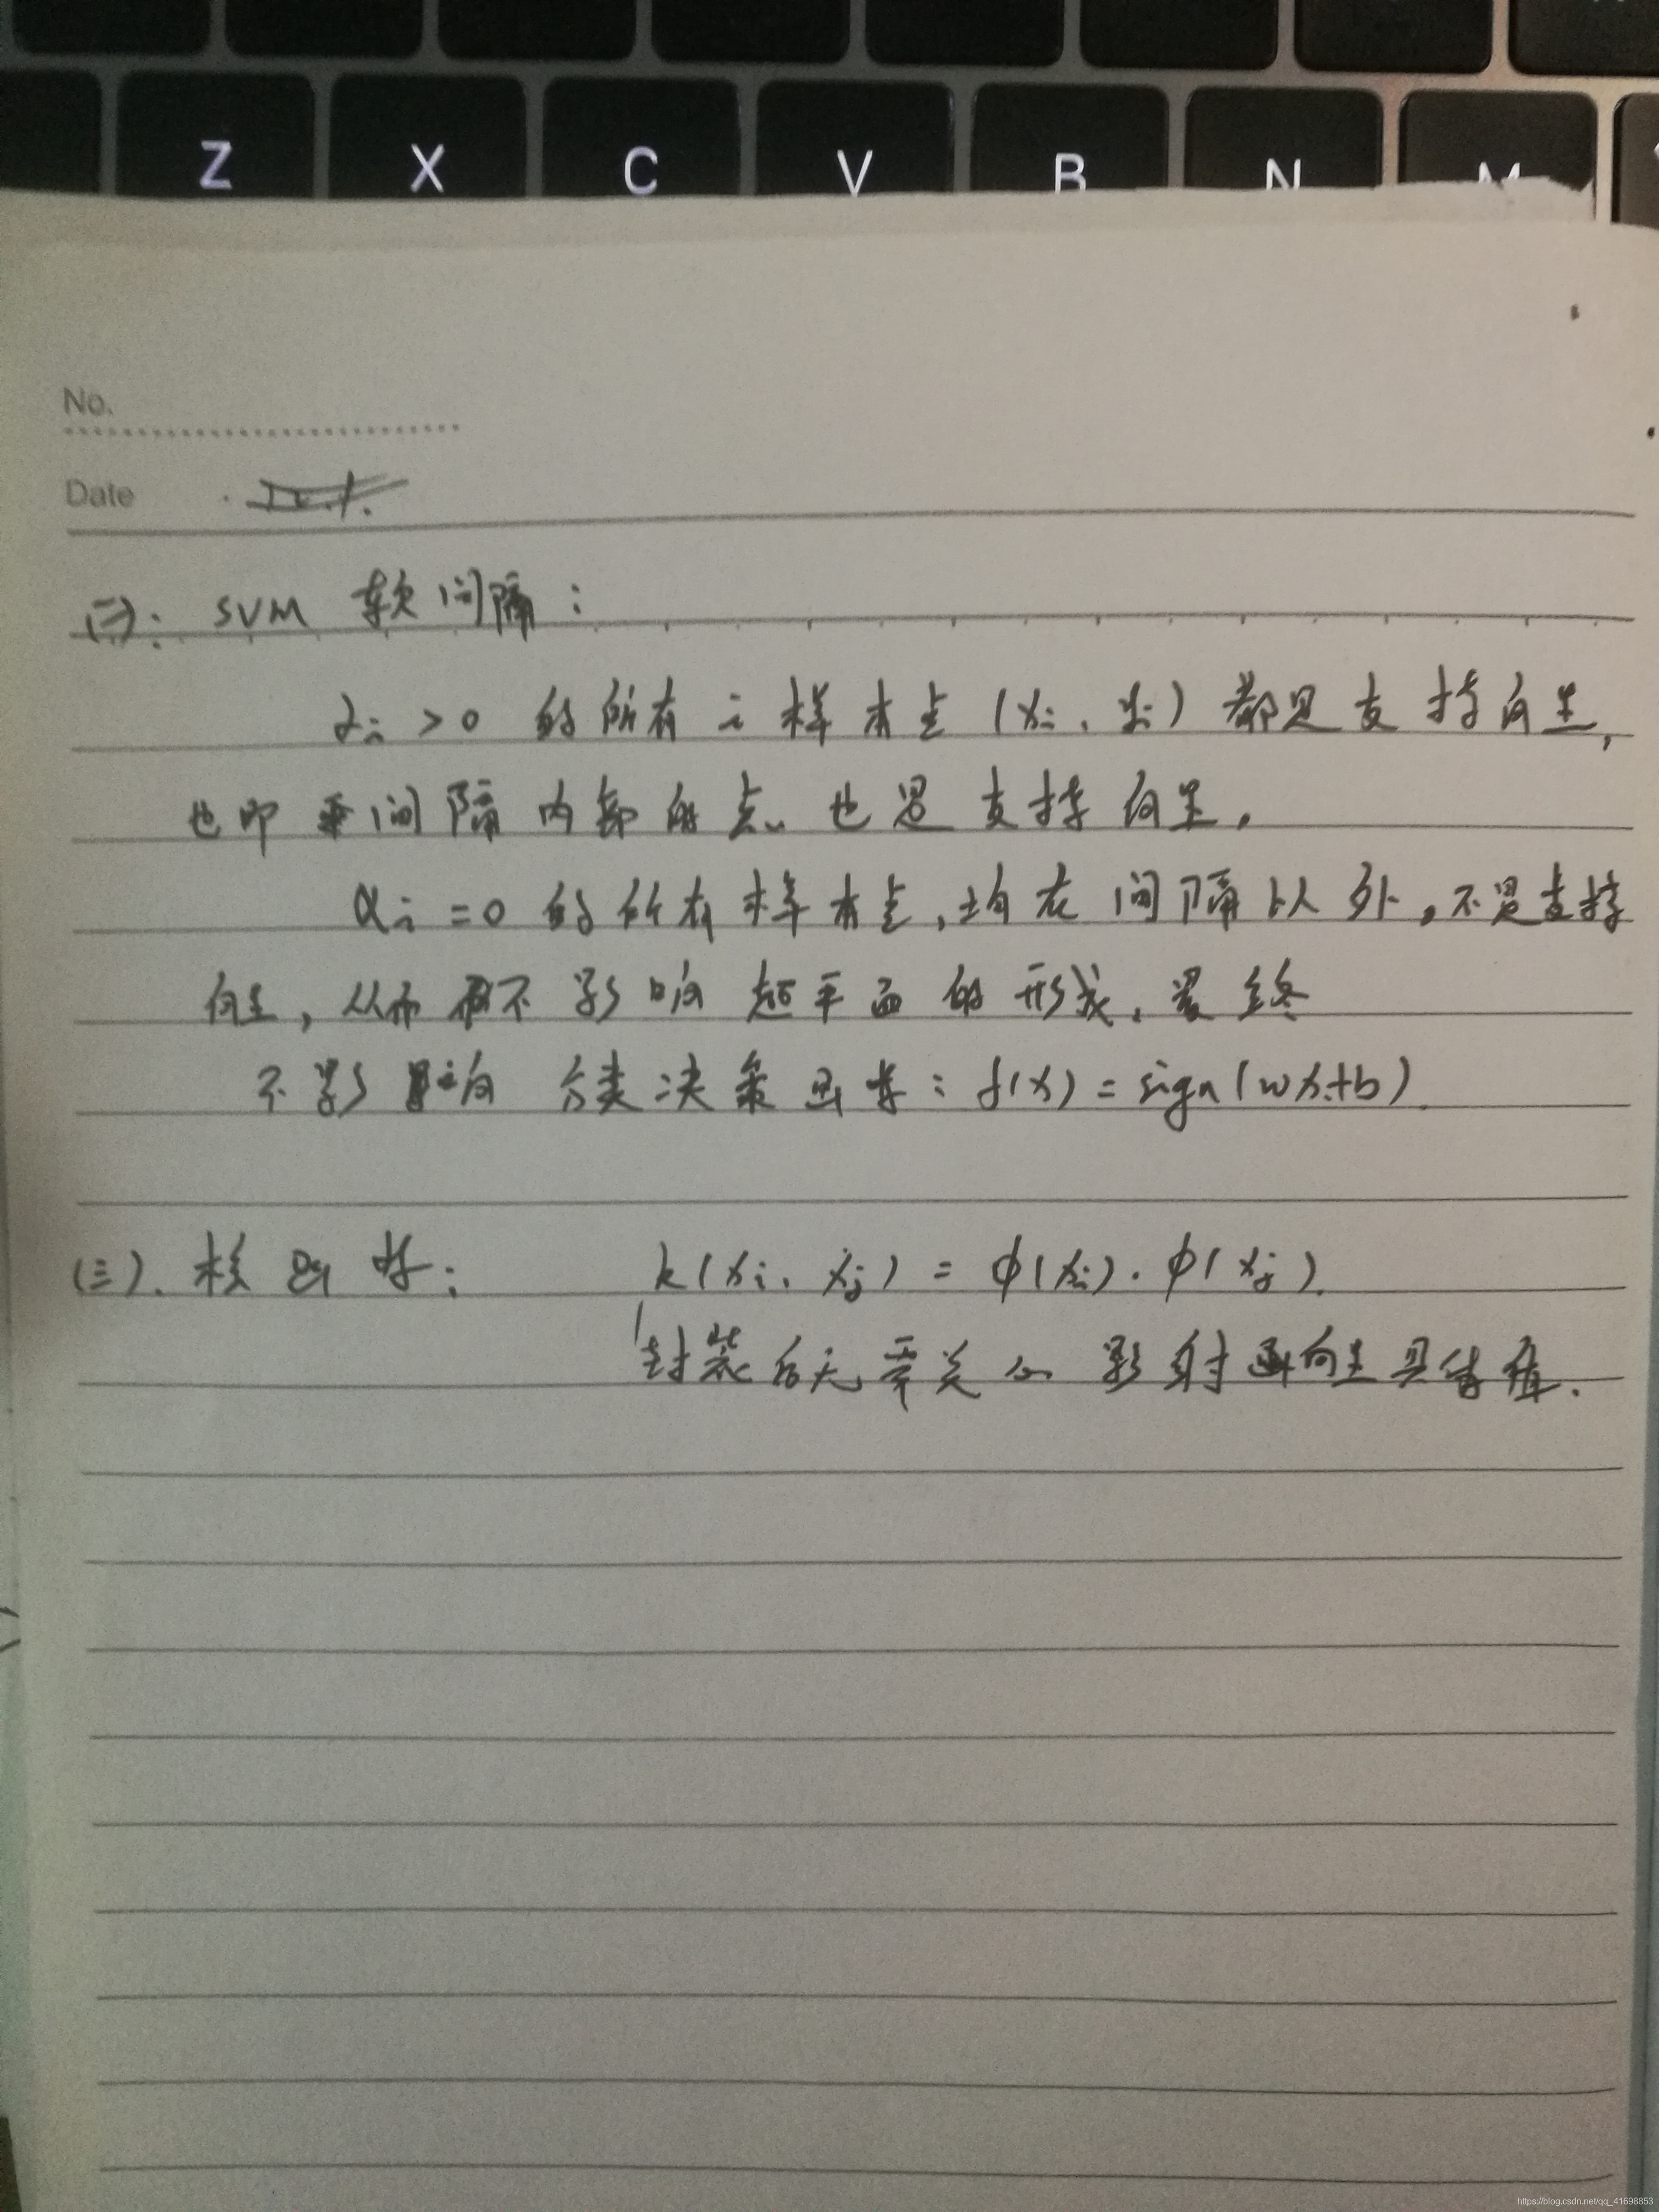 Z X C V B N M
No.
Date
(二): SVM 软间隔:
αi >0 的所有 i 样本点 (xi, yi) 都是支持向量,
也即 间隔内部的点 也是支持向量.
αi =0 的所有样本点,均在间隔以外,不是支持
向量, 从而 不影响超平面的形成, 最终
不影响 分类决策函数: f(x) = sign(wx+b).
(三). 核函数: k(xi, xj) = φ(xi)·φ(xj).
封装后无需关心 影射 向量具体值.
https://blog.csdn.net/qq_41698853